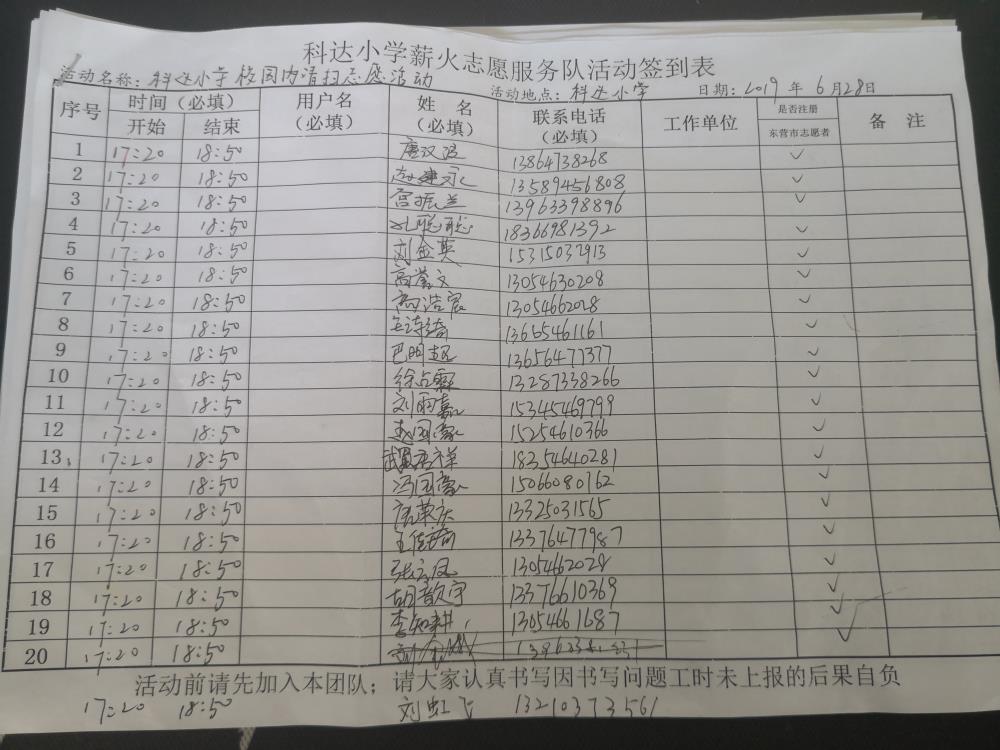 科达小学薪火志愿服务队活动签到表
活动名称：科达小学校园内清扫志愿活动 活动地点：科达小学 日期：2019 年 6月28日
序号 时间（必填） 开始 结束 用户名（必填） 姓 名（必填） 联系电话（必填） 工作单位 是否注册东营市志愿者 备 注
1 17:20 18:50 唐汉滔 13864738268 ✓
2 17:20 18:50 赵建永 13589456808 ✓
3 17:20 18:50 宫振兰 13963398896 ✓
4 17:20 18:50 孔聪聪 18366981392 ✓
5 17:20 18:50 刘金英 15315037913 ✓
6 17:20 18:50 高誉文 13054630208 ✓
7 17:20 18:50 高浩宸 13054662028 ✓
8 17:20 18:50 13655461161 ✓
9 17:20 18:50 巴明超 13656477377 ✓
10 17:20 18:50 徐占霖 13287338266 ✓
11 17:20 18:50 刘雨嘉 15345469799 ✓
12 17:20 18:50 赵国豪 15254610366 ✓
13 17:20 18:50 18354640281 ✓
14 17:20 18:50 冯国豪 15066080762 ✓
15 17:20 18:50 13325031565 ✓
16 17:20 18:50 13376477987 ✓
17 17:20 18:50 张云凤 1305462028 ✓
18 17:20 18:50 胡歆宇 13376610369 ✓
19 17:20 18:50 李知耕 13054661687 ✓
20 17:20 18:50 ✓
活动前请先加入本团队；请大家认真书写因书写问题工时未上报的后果自负
17:20 18:50 刘虹飞 13210373561